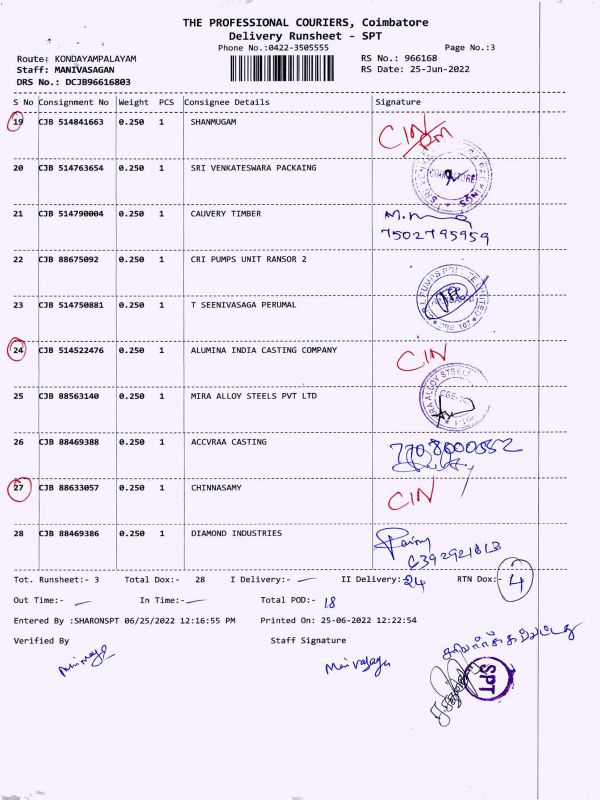 THE PROFESSIONAL COURIERS, Coimbatore
Delivery Runsheet - SPT
Phone No.:0422-3505555
Page No.:3
Route: KONDAYAMPALAYAM
RS No.: 966168
Staff: MANIVASAGAN
RS Date: 25-Jun-2022
DRS No.: DCJB96616803
S No Consignment No Weight PCS Consignee Details Signature
19 CJB 514841663 0.250 1 SHANMUGAM CIN
20 CJB 514763654 0.250 1 SRI VENKATESWARA PACKAING
21 CJB 514790004 0.250 1 CAUVERY TIMBER
7502795959
22 CJB 88675092 0.250 1 CRI PUMPS UNIT RANSOR 2
23 CJB 514750881 0.250 1 T SEENIVASAGA PERUMAL
24 CJB 514522476 0.250 1 ALUMINA INDIA CASTING COMPANY CIN
25 CJB 88563140 0.250 1 MIRA ALLOY STEELS PVT LTD
MIRA ALLOY STEELS
26 CJB 88469388 0.250 1 ACCVRAA CASTING
27 CJB 88633057 0.250 1 CHINNASAMY CIN
28 CJB 88469386 0.250 1 DIAMOND INDUSTRIES
Tot. Runsheet:- 3 Total Dox:- 28 I Delivery:- — II Delivery:- 24 RTN Dox:- 4
Out Time:- — In Time:- — Total POD:- 18
Entered By :SHARONSPT 06/25/2022 12:16:55 PM Printed On: 25-06-2022 12:22:54
Verified By Staff Signature
Manivasagan
SPT